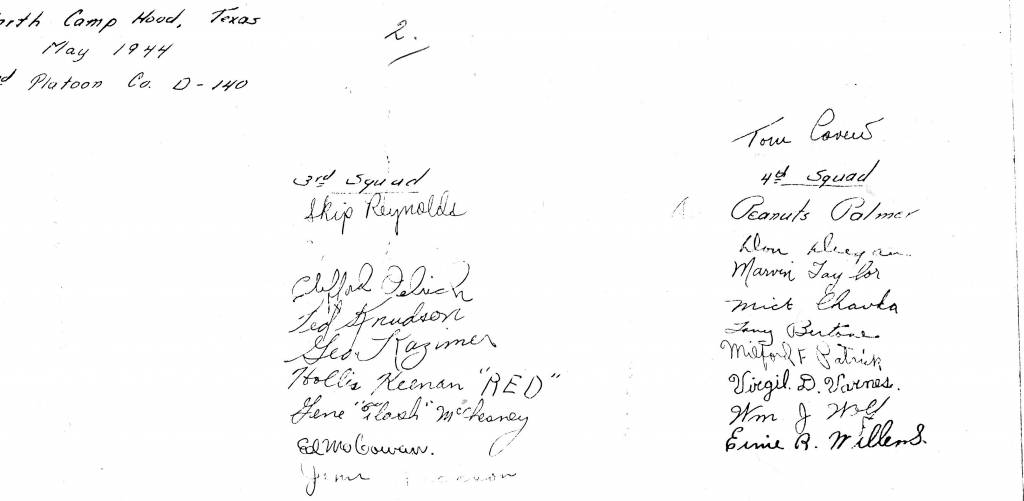 North Camp Hood, Texas
May 1944
Platoon Co. D-140
2.
3rd Squad
Skip Reynolds
Clifford
Ted Knudson
Geo. Kazimer
Hollis Keenan "RED"
Gene "Flash" McChesney
Ed McGowan.
Tom
4th Squad
Peanuts Palmer
Don
Marvin Taylor
Mick Chavka
Tony Bertone
Milford F Patrick
Virgil D. Varnes.
Wm J Wolf
Ernie R. Willems.